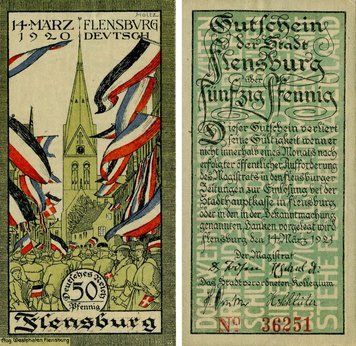 Holtz
14·MÄRZ FLENSBURG
1920 DEUTSCH
Deutsches Reich
50
Pfennig
Flensburg
Aug. Westphalen Flensburg
Gutschein
der Stadt
Flensburg
über
fünfzig Pfennig
Dieser Gutschein verliert
seine Gültigkeit wenn er
nicht innerhalb eines Monats nach
erfolgter öffentlicher Aufforderung
des Magistrats in den flensburger
Zeitungen zur Einlösung bei der
Stadthauptkasse in Flensburg
oder in den in der Bekanntmachung
genannten Banken vorgelegt wird
Flensburg den 14. März 1921
Der Magistrat
Das Stadtverordneten Kollegium
No 36251